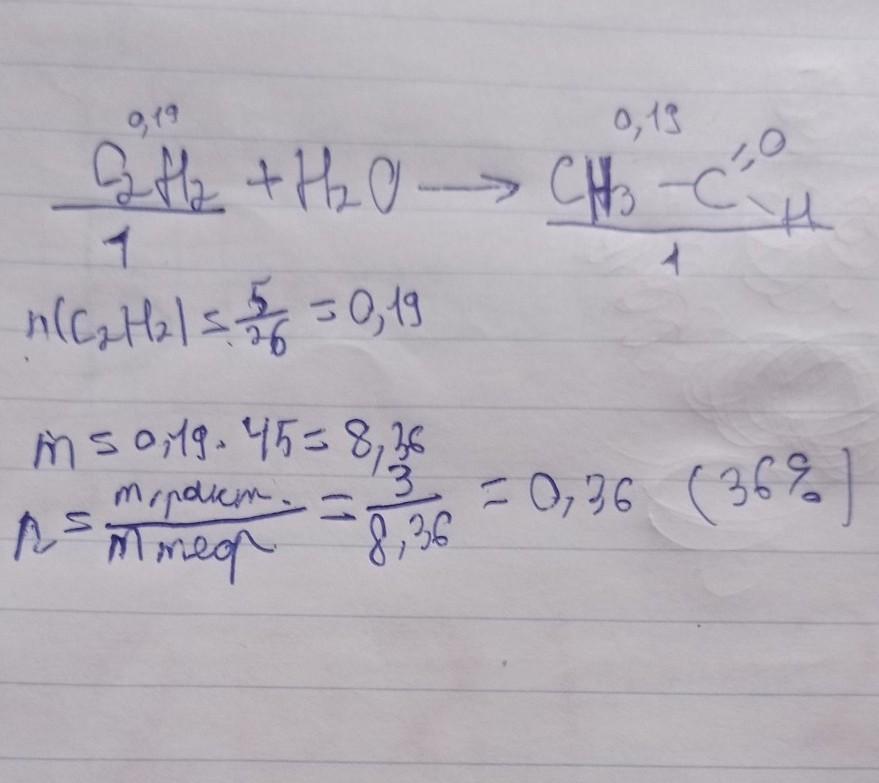 0,19 0,19
C₂H₂ + H₂O ⟶ CH₃ – C =O \H
1 1
n(C₂H₂) = 5/26 = 0,19
m = 0,19 · 45 = 8,36
= m практ. / m теор. = 3/8,36 = 0,36 (36%)